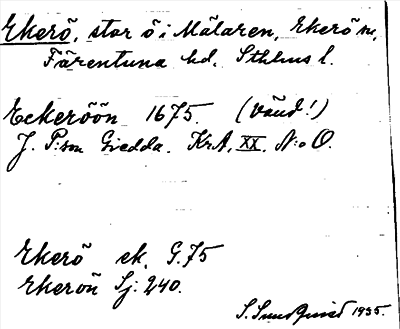 Ekerö, stor ö i Mälaren, Ekerö sn,
Färentuna hd. Sthlms l.
Eckeröön 1675. (vänd!)
J. P:son Giedda. KrA. XX. N:o O.
Ekerö ek. G.75
Ekerön Sj: 240.
S. Sundquist 1935.